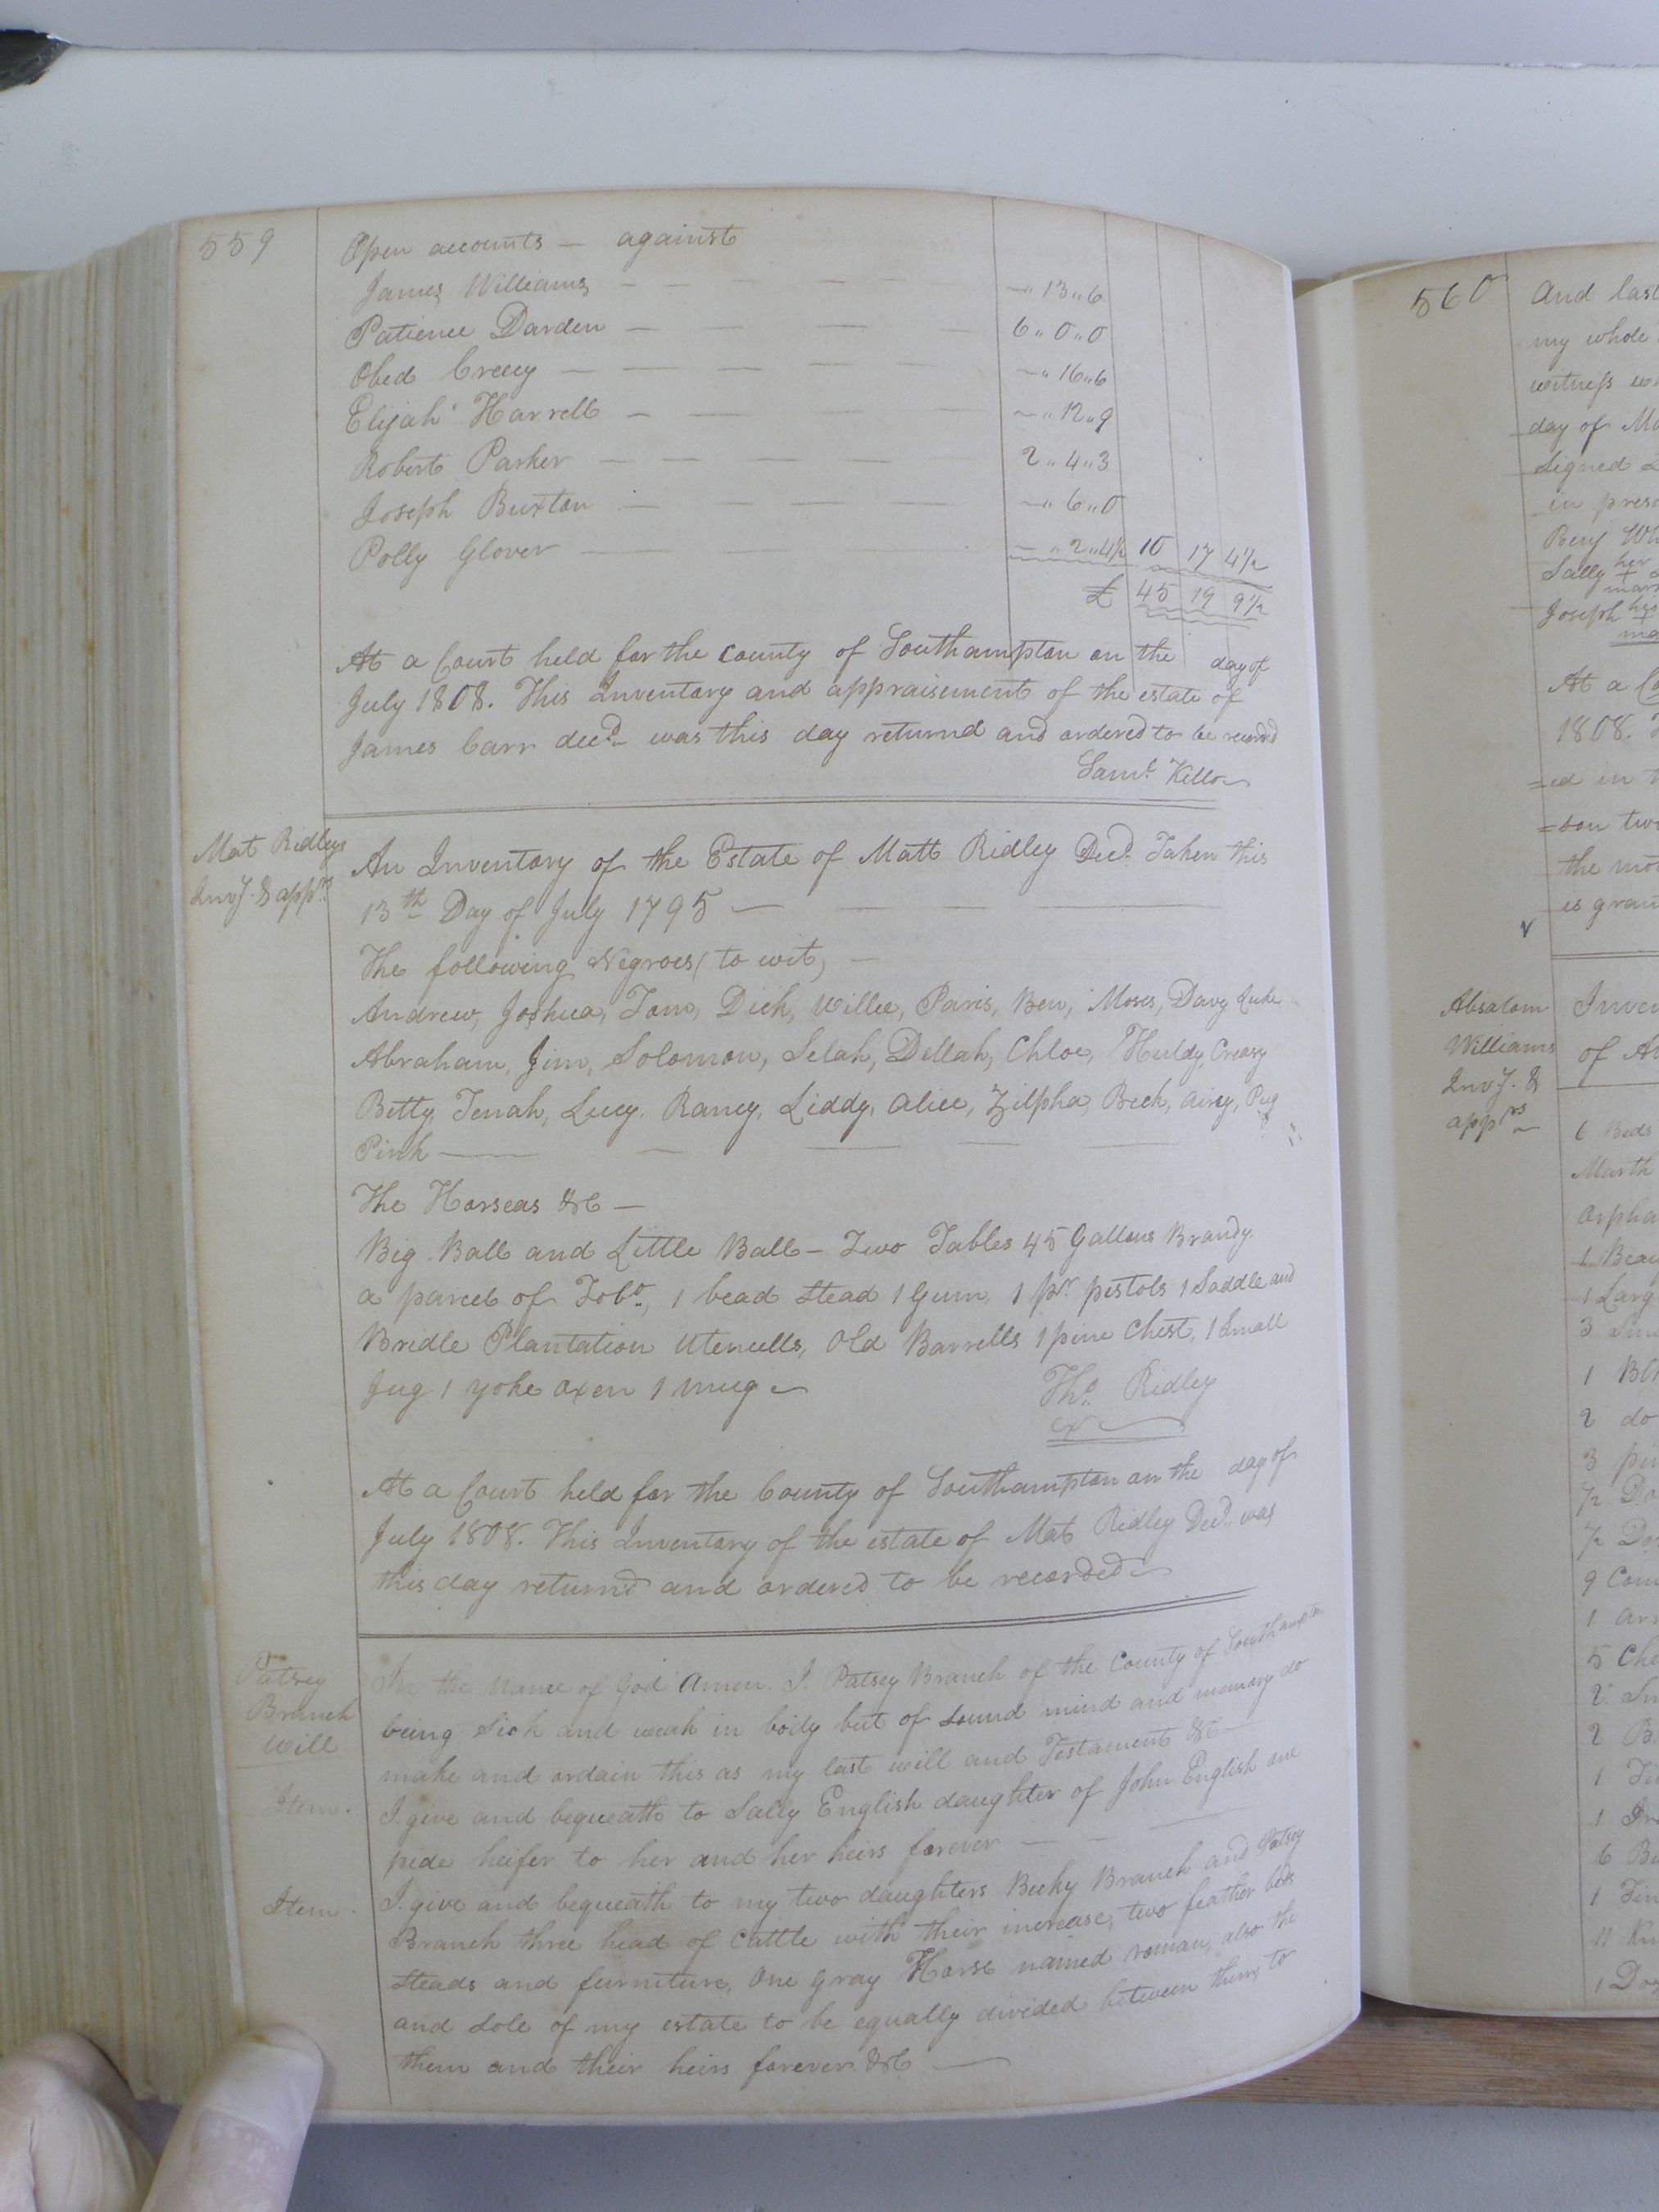 559
Open accounts — against
James Williams — — — — — —" 13" 6
Patience Darden — — — — 6" 0" 0
Obed Creecy — — — — —" 16" 6
Elijah Harrell — — — — —" 12" 9
Robert Parker — — — — 2" 4" 3
Joseph Buxton — — — — —" 6" 0
Polly Glover — — — —" 2" 4½ 10 17 4½
£ 45 19 9½
At a Court held for the County of Southampton on the day of
July 1808. This Inventory and appraisement of the estate of
James Carr decd. was this day returnd and ordered to be recorded
Saml. Kello
Mat Ridleys
Invy. & apprs.
An Inventory of the Estate of Matt Ridley Decd. Taken this
13th Day of July 1795 — — — —
The following Negroes (to wit) —
Andrew, Joshua, Tom, Dick, Willie, Paris, Ben, Moses, Davy Luke
Abraham, Jim, Solomon, Selah, Dellah, Chloe, Huldy, Creasy
Betty, Tenah, Lucy, Rancy, Liddy, Alice, Zilpha, Beck, Airy, Pug
Pink — — — — —
The Horseas &c —
Big Ball and Little Ball — Two Tables 45 Gallons Brandy
a parcel of Tobo., 1 bead Stead 1 Gun, 1 pr pistols 1 Saddle and
Bridle Plantation Utencells, Old Barrells 1 pine Chest, 1 Small
Jug 1 yoke oxen 1 mug
Tho. Ridley
At a Court held for the County of Southampton on the day of
July 1808. This Inventory of the estate of Mat Ridley Decd. was
this day returnd and ordered to be recorded
Patsey
Branch
Will
In the Name of God Amen. I. Patsey Branch of the County of Southampton
being Sick and weak in body but of sound mind and memory do
make and ordain this as my last will and Testament &c
Item. I give and bequeath to Sally English daughter of John English one
pide heifer to her and her heirs forever — — —
Item. I give and bequeath to my two daughters Becky Branch and Patsey
Branch three head of Cattle with their increase, two feather beds
steads and furniture, One Gray Horse named roman, also the
and sole of my estate to be equally divided between them, to
them and their heirs forever &c —
560
And last
my whole
witness
day of
Signed
in pres
Benj
Sally her
+
mark
Joseph his
+
At a Co
1808.
=ed in
=son two
the mo
is gran
Absalom
Williams
Invy. &
apprs
Inven
of
6 Beds
Marth
Orpha
1 Larg
3
1
2 do
3
½
½
9
1
5
2
2
1
1
6
1
11
1